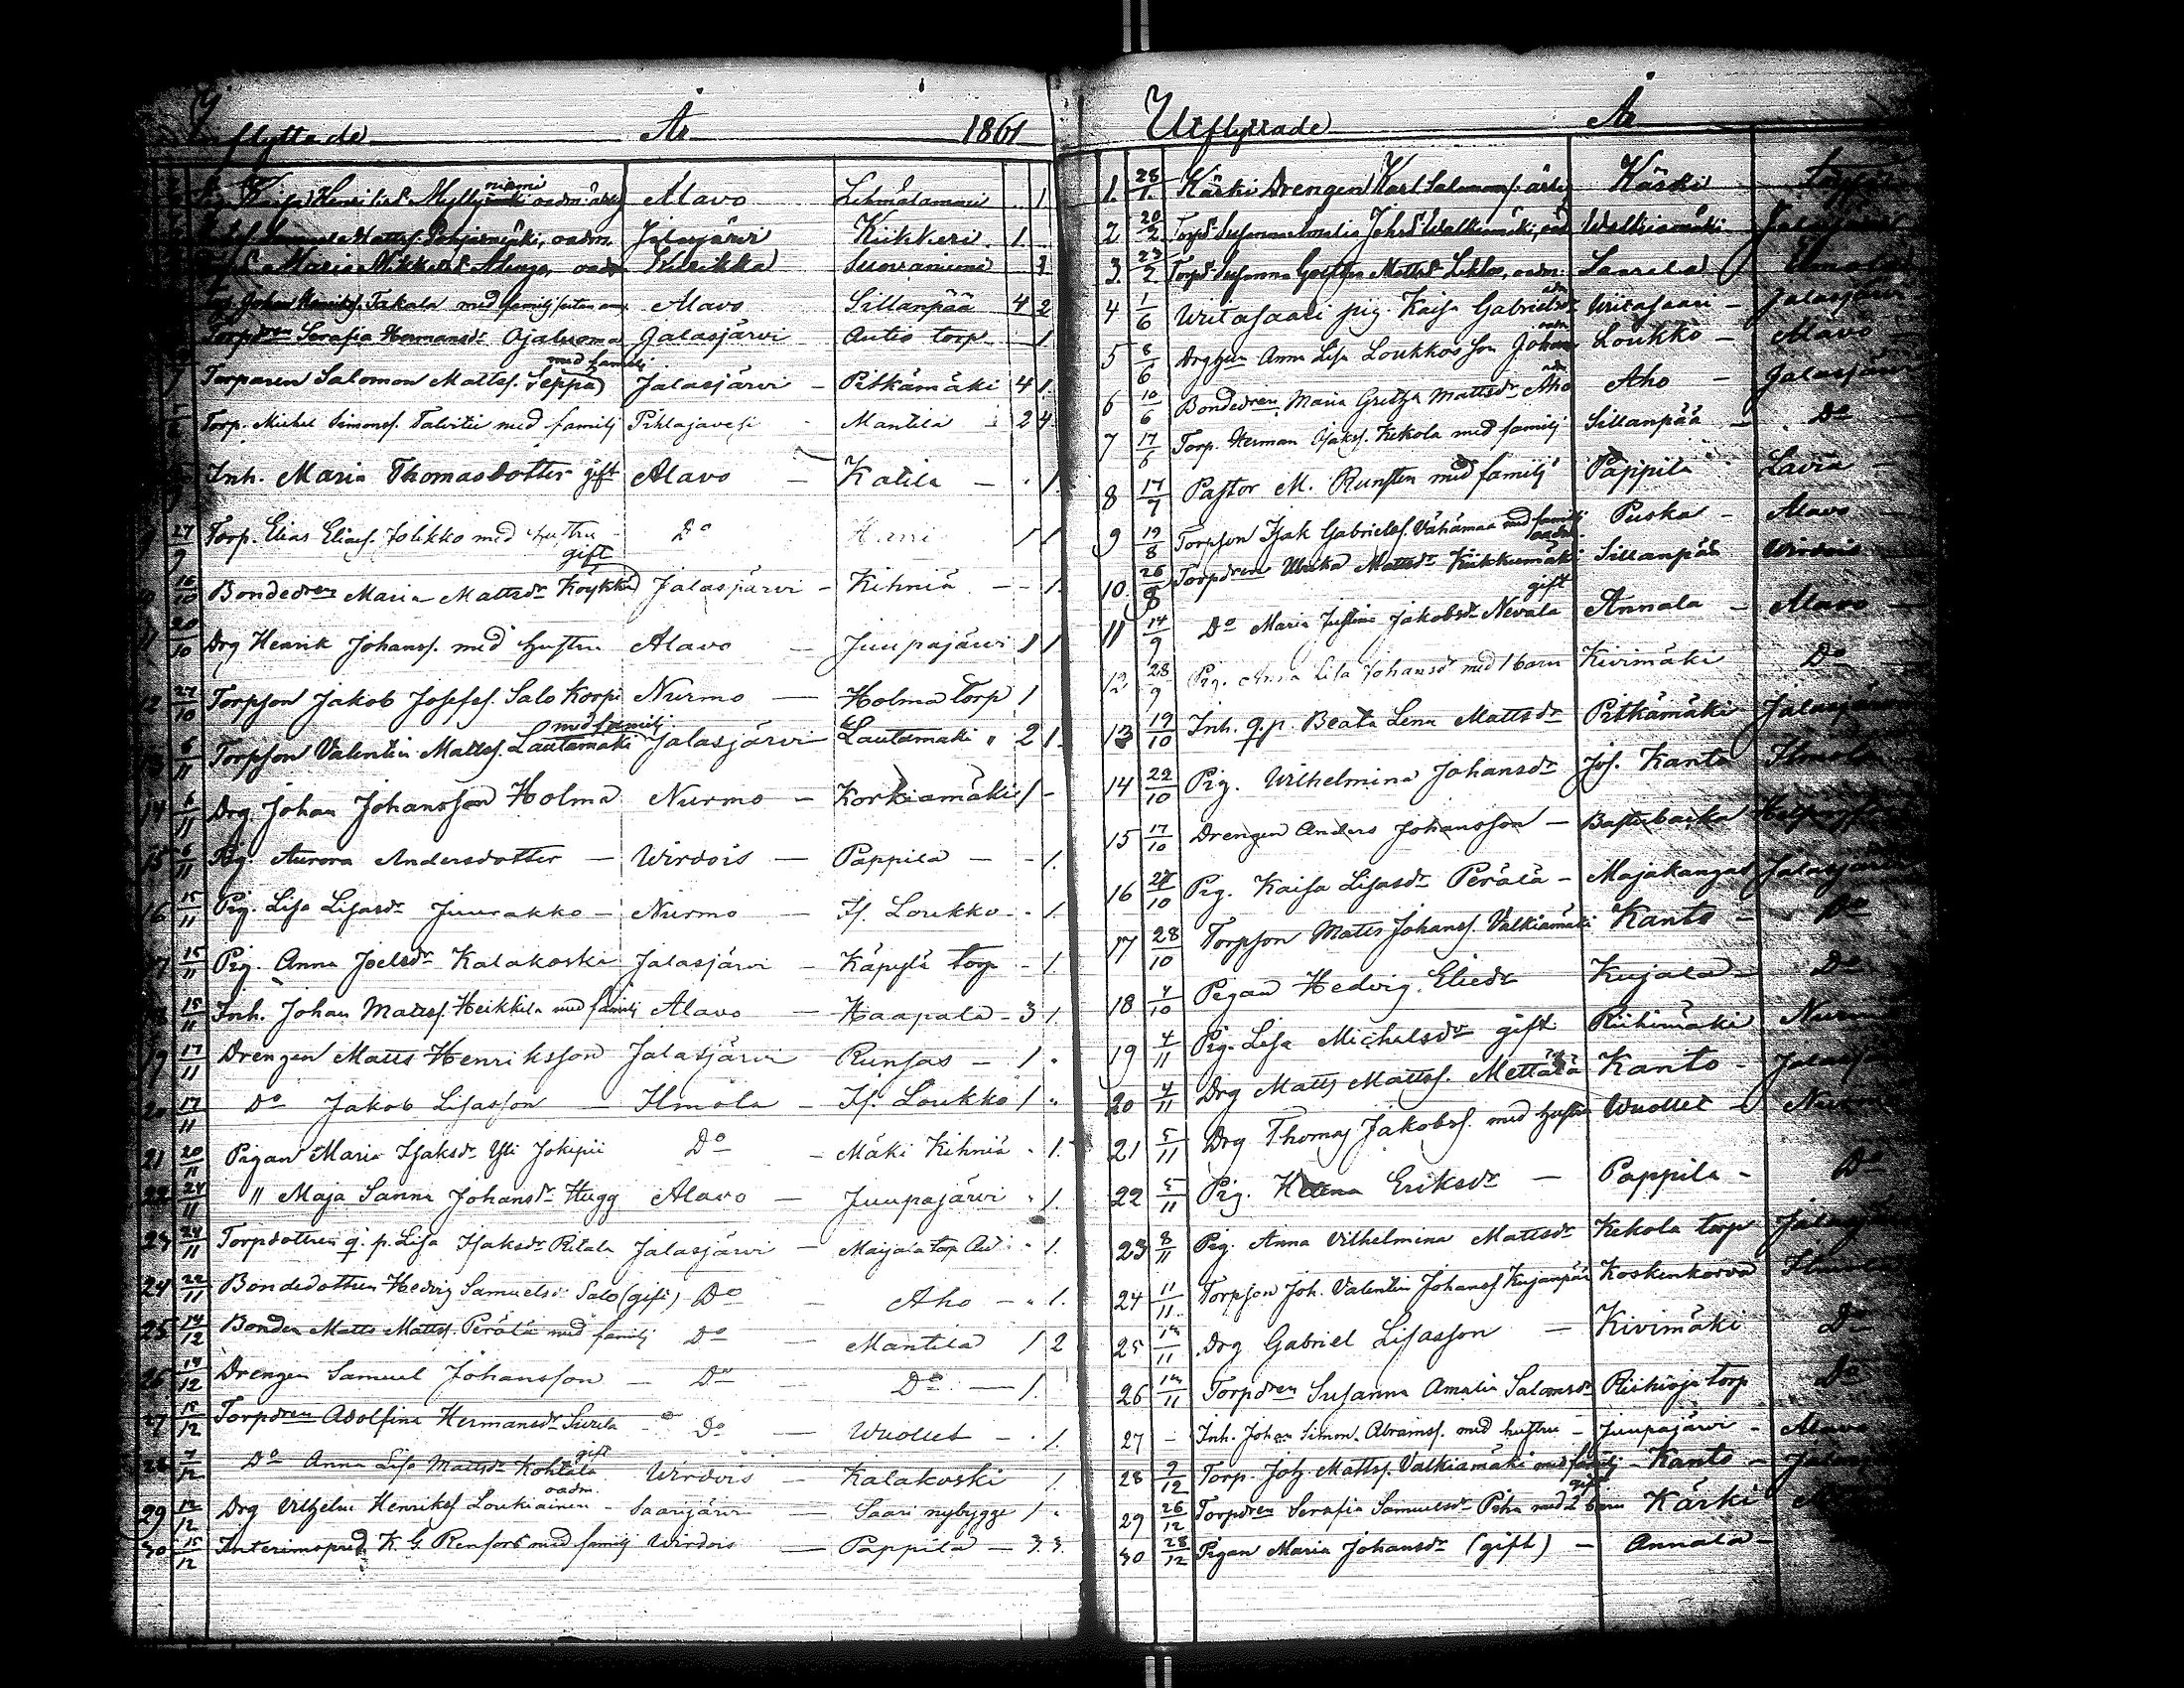 Inflyttade År 1861
Kaisa Henriksdr Mylly niemi Alavo 1.
Jalasjärvi Kiikkeri 1
Maria oadm Kurikka Suovaniemi 1
Johan Takala med familj Alavo Sillanpää 4 2
Torpdren Serafia Hermansdr Ojaluoma Jalasjärvi Autio torp 1
Torparen Salomon Mattss. Seppä med familj Jalasjärvi - Pitkämäki 4 1.
Torp. Michel Simonss. Talvitie med familj Pihlajavesi Mantila 2 4.
Inh. Maria Thomasdotter gift Alavo - Katila - . 1.
27/9 Torp. Elias Eliass. Jolikko med hustru Do 1 1
16/10 Bondedren Maria Mattsdr Köykkä gift Jalasjärvi - Kihniä - 1.
20/10 Drg Henrik Johanss. med hustru Alavo - Juupajärvi 1 1
12 27/10 Torpson Jakob Josefss. Salo Korpi Nurmo - Holma torp 1
6/11 Torpson Valentin Mattss. Lautamäki med familj Jalasjärvi Lautamäki " 2 1.
14 6/11 Drg. Johan Johansson Holma Nurmo - Korkiamäki 1 -
15 6/11 Pig. Aurora Andersdotter - Wirdois - Pappila - - 1.
16 15/11 Pig. Lisa Lisasdr Juurakko - Nurmo - Is. Loukko - . 1.
15/11 Pig. Anna Joelsdr Kalakoski Jalasjärvi - Käpylä torp - 1.
15/11 Inh. Johan Mattss. Heikkilä med familj Alavo - Haapala - 3 1.
19 17/11 Drengen Matts Henriksson Jalasjärvi Runsas - 1 .
20 17/11 Do Jakob Lisasson - Ilmola - Is. Loukko 1 "
21 20/11 Pigan Maria Isaksdr Yli Jokipii Do - Mäki Kihniä . 1.
22 24/11 " Maja Sanna Johansdr Hugg Alavo - Juupajärvi . 1.
23 24/11 Torpdottren q. p. Lisa Isaksdr Ritala Jalasjärvi - Maijala torp . 1.
24 22/11 Bondedottren Hedvig Samuelsdr Salo (gift) Do - Aho - . 1.
25 14/12 Bonden Matts Mattss. Perälä med familj Do - Mantila 1 2
26 14/12 Drengen Samuel Johansson - Do - Do - 1.
27 15/12 Torpdren Adolfina Hermansdr - Do - Wuollet - . 1.
7/12 Do Anna Lisa Mattsdr Kohtala gift Wirdois - Kalakoski 1.
29 12/12 Drg Vilhelm Henrikss. Loukiainen oadm. - Saarijärvi - Saari nybygge 1 .
30 15/12 Interimspred. K. G. Renfors med familj Wirdois - Pappila - 3. 3.
Utflyttade År
1. 28/1. Käski Drengen Karl Salomonss. Käski
2 20/2 Torpdr Susanna Amalia Johsdr Walkiamäki Walkiamäki Jalasjärvi
3. 23/2 Torpdr Susanna Mattsdr oadm. Saarela
4 1/6 Writasaari pig. Kaisa Gabrielsdr Writasaari - Jalasjärvi
5 Anna Lisa Loukkos son Johan Loukko - Alavo
6 10/6 Bondedren Maria Gretha Mattsdr Aho Aho - Jalasjärvi
7 17/6 Torp. Herman Isakss. Kekola med familj Sillanpää - Do
8 17/7 Pastor M. Runsten med familj Pappila Lavia -
9 19/8 Torpson Isak Gabrielss. Vähämaa med familj Puska - Alavo
10. 26/8 Torpdren Ulrika Mattsdr Kiikkumäki oadm. Sillanpää Wirdois
11 14/9 Do Maria Justina Jakobsdr Nevala gift Annala - Alavo -
12 28/9 Pig. Anna Lisa Johansdr med 1 barn Kivimäki Do
13 19/10 Inh. q. p. Beata Lena Mattsdr Pitkämäki Jalasjärvi
14 22/10 Pig. Wilhelmina Johansdr Jos. Kanto Ilmola
15 17/10 Drengen Anders Johansson - Bastubacka
16 27/10 Pig. Kaisa Lisasdr Perälä - Majakangas Jalasjärvi
17 28/10 Torpson Matts Johanss. Valkiamäki Kanto - Do
18 4/10 Pigan Hedvig Eliedr Kujala - Do
19 4/11 Pig. Lisa Michelsdr gift Riihimäki Nurmo
20 4/11 Drg Matts Mattss. Mettälä Kanto - Jalasjärvi
21 5/11 Drg Thomas Jakobss. med hustru Wuollet - Nurmo
22 5/11 Pig. Helena Eriksdr - Pappila - Do
23 8/11 Pig. Anna Vilhelmina Mattsdr Kekola torp Jalasjärvi
24 11/11. Torpson Joh. Valentin Johanss Kujanpää Koskenkorva Ilmola
25 14/11 Drg Gabriel Lisasson - Kivimäki Do
26 14/11 Torpdren Susanna Amalia Salomsdr torp Do
27 - Inh. Johan Simon Abramss. med hustru - Juupajärvi - Alavo
28 9/12 Torp. Joh. Mattss. Valkiamäki med familj - Kanto - Jalasj
29 26/12 Torpdren Serafia Samuelsdr gift med 2 barn Kärki
30 28/12 Pigan Maria Johansdr (gift) - Annala -